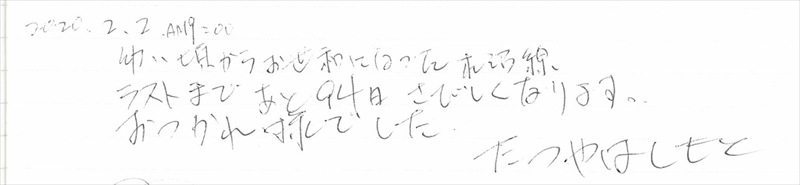 2020.2.2.AM9=00
幼い頃からお世和になった札沼線、
ラストまであと94日 さびしくなります。
おつかれ様でした.
たつやはしもと